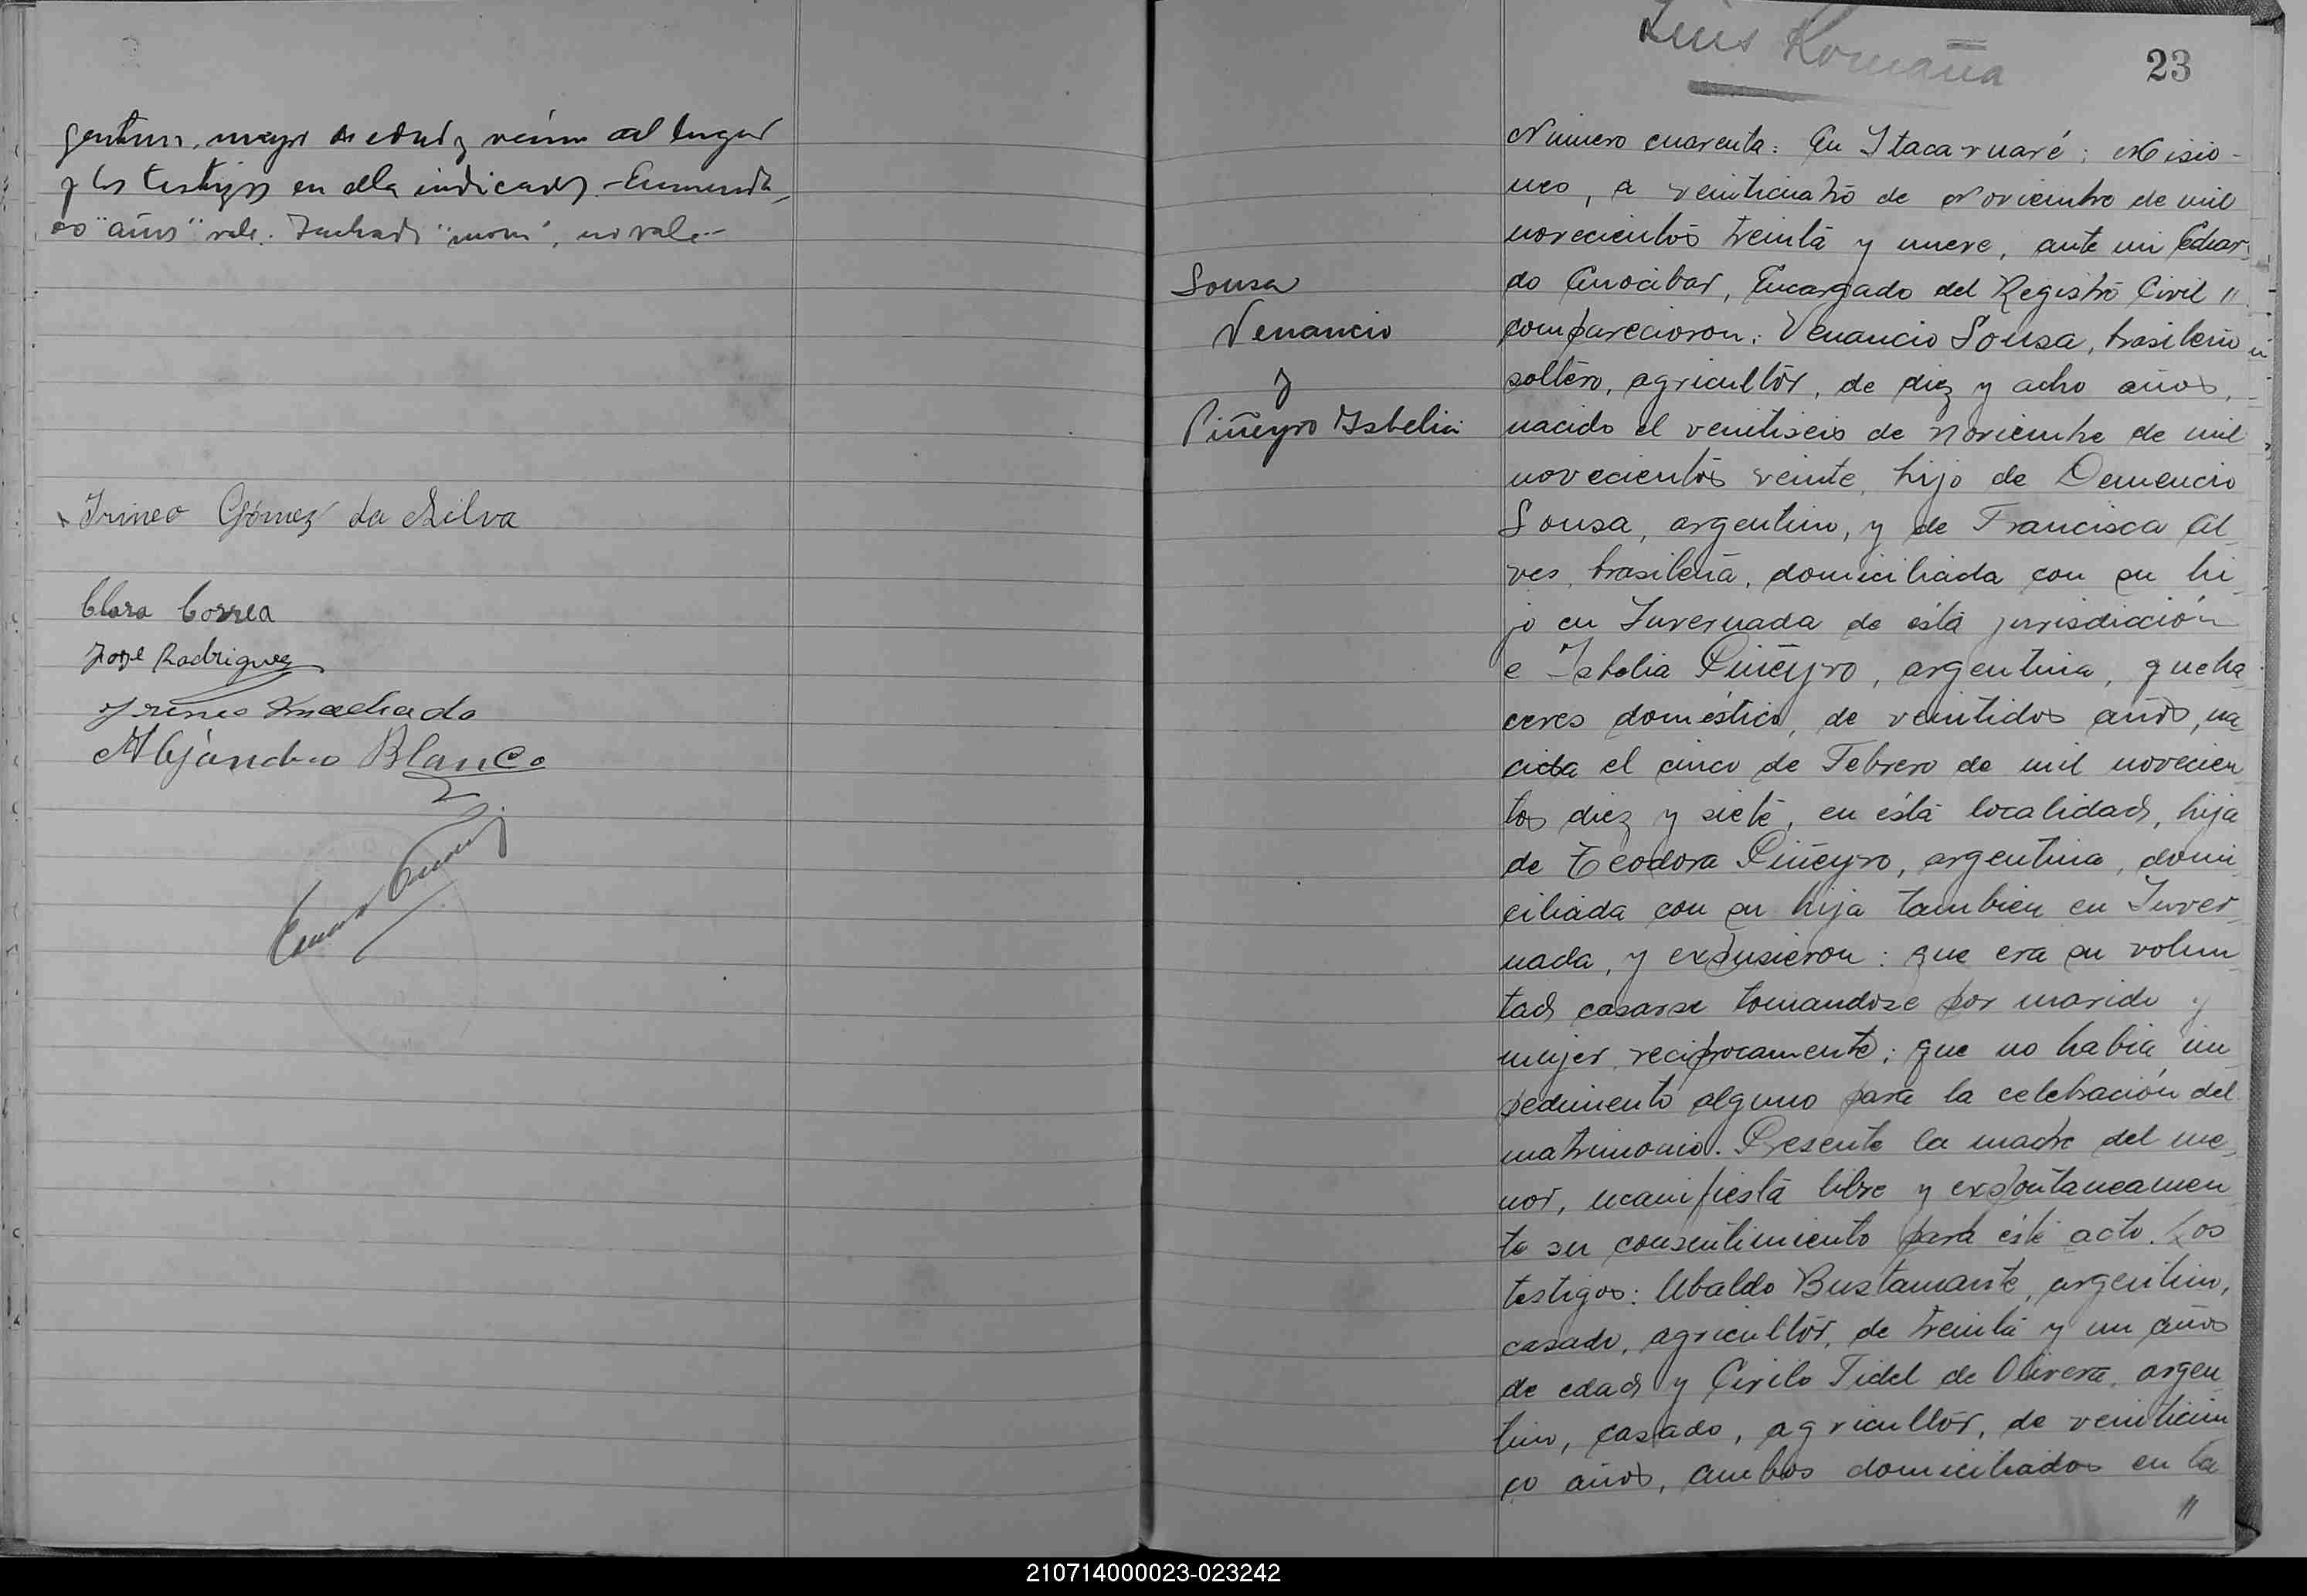 gentina, mayor de edad y vecina del lugar
y los testigos en ella indicados - Enmenda
do "años" vale. Tachado "mom", no vale -
Irineo Gómez da Silva
Clara Correa
José Rodriguez
Irineo Machado
Alejandro Blanco
Luis Romaña
23
Sousa
Venancio
y
Piñeyro Isbelia
Número cuarenta: En Itacaruaré, Misio-
nes, a veinticuatro de Noviembre de mil
novecientos treinta y nueve, ante mi Eduar-
do Enocibar, Encargado del Registro Civil "
comparecieron: Venancio Sousa, brasilero
soltero, agricultor, de diez y ocho años,
nacido el veintiseis de Noviembre de mil
novecientos veinte, hijo de Demencio
Sousa, argentino, y de Francisca Al
ves, brasileña, domiciliada con su hi-
jo en Invernada de ésta jurisdicción
e Isbelia Piñeyro, argentina, queha
ceres doméstico, de veintidos años, na
cida el cinco de Febrero de mil novecien
tos diez y siete, en ésta localidad, hija
de Teodora Piñeyro, argentina, domi
ciliada con su hija tambien en Inver-
nada, y expusieron: que era su volun
tad casarse tomandose por marido y
mujer reciprocamente; que no habia im
pedimento alguno para la celebración del
matrimonio. Presente la madre del me
nor, manifiesta libre y expontaneamen
te su consentimiento para éste acto. Los
testigos: Ubaldo Bustamante, argentino,
casado, agricultor, de treinta y un años
de edad y Cirilo Fidel de Olivera, argen
tino, casado, agricultor, de veinticin
co años, ambos domiciliados en la
"
210714000023-023242